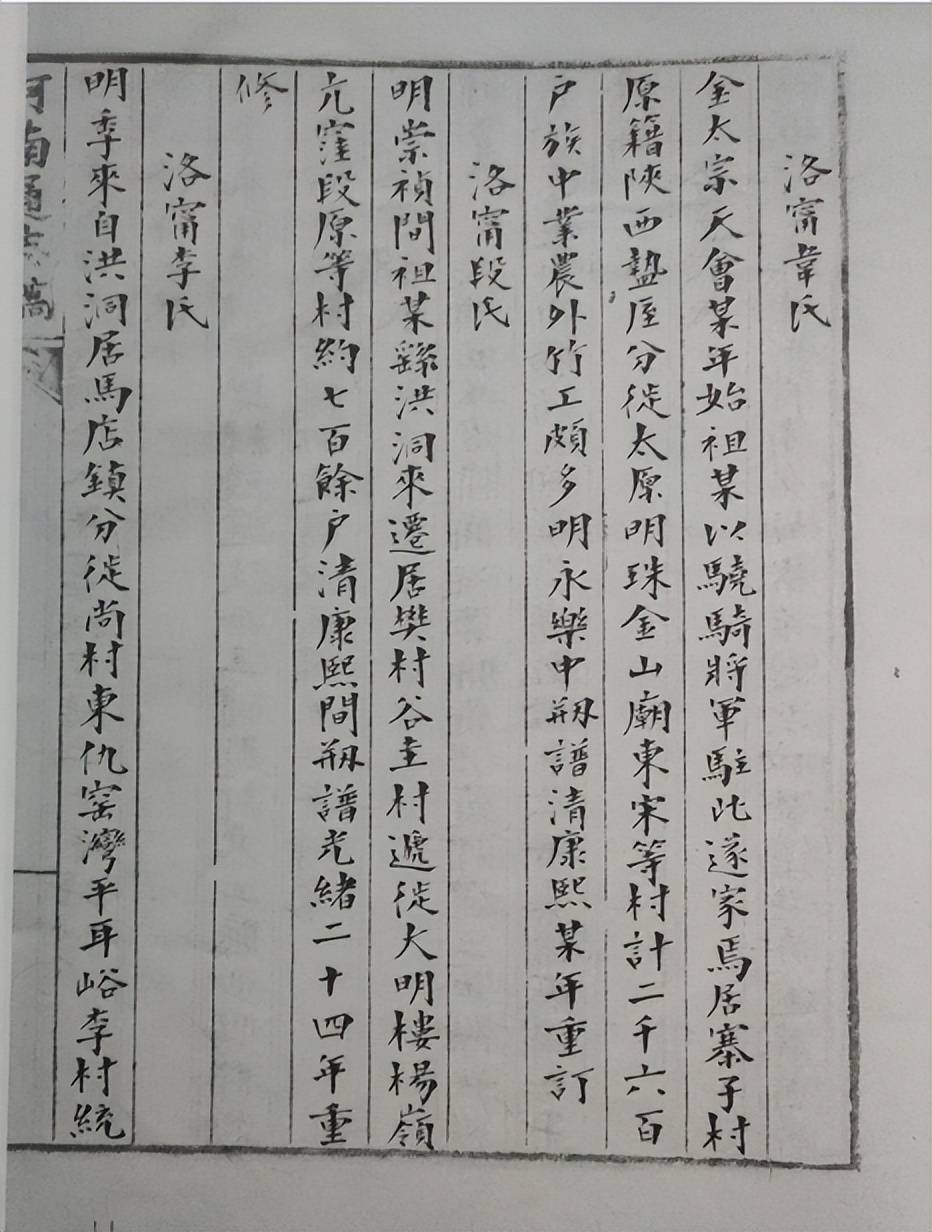 洛甯韋氏
金太宗天會某年始祖某以驍騎將軍駐此遂家焉居寨子村
原籍陝西盩厔分徙太原明珠金山廟東宋等村計二千六百
戶族中業農外竹工頗多明永樂中剏譜清康熙某年重訂
洛甯段氏
明崇禎間祖某繇洪洞來遷居樊村谷圭村遞徙大明樓楊嶺
亢窪段原等村約七百餘戶清康熙間剏譜光緒二十四年重
修
洛甯李氏
明季來自洪洞居馬店鎮分徙尚村東仇窑灣平耳峪李村統
河南通志稿